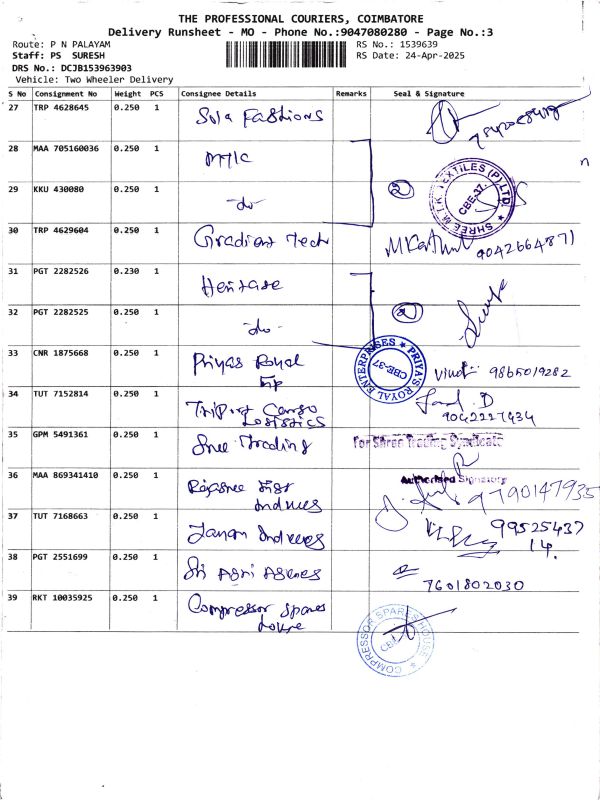 THE PROFESSIONAL COURIERS, COIMBATORE
Delivery Runsheet - MO - Phone No.:9047080280 - Page No.:3
Route: P N PALAYAM
RS No.: 1539639
Staff: PS SURESH
RS Date: 24-Apr-2025
DRS No.: DCJB153963903
Vehicle: Two Wheeler Delivery
S No Consignment No Weight PCS Consignee Details Remarks Seal & Signature
27 TRP 4628645 0.250 1 Sola Fashions
28 MAA 705160036 0.250 1 MTIC
29 KKU 430080 0.250 1 -do-
2
SHREE M.T.K TEXTILES (P) LTD. CBE-37.
30 TRP 4629604 0.250 1 Gradient Tech 9042664871
31 PGT 2282526 0.230 1 Heritage
32 PGT 2282525 0.250 1 -do-
2
33 CNR 1875668 0.250 1 Priyas Royal
Enp
PRIYA'S ROYAL ENTERPRISES CBE-37
Vinot 9865019282
34 TUT 7152814 0.250 1 Tripist Cargo
Logistics
9042227434
35 GPM 5491361 0.250 1 Sree Trading
For Shree Trading Syndicate
Authorised Signatory
36 MAA 869341410 0.250 1 Rajasree
Indures
9790147935
37 TUT 7168663 0.250 1 Janani Indures
99525437
14.
38 PGT 2551699 0.250 1 Sri Agri
7601802030
39 RKT 10035925 0.250 1 Compressor Spares
House
COMPRESSOR SPARES HOUSE CBE